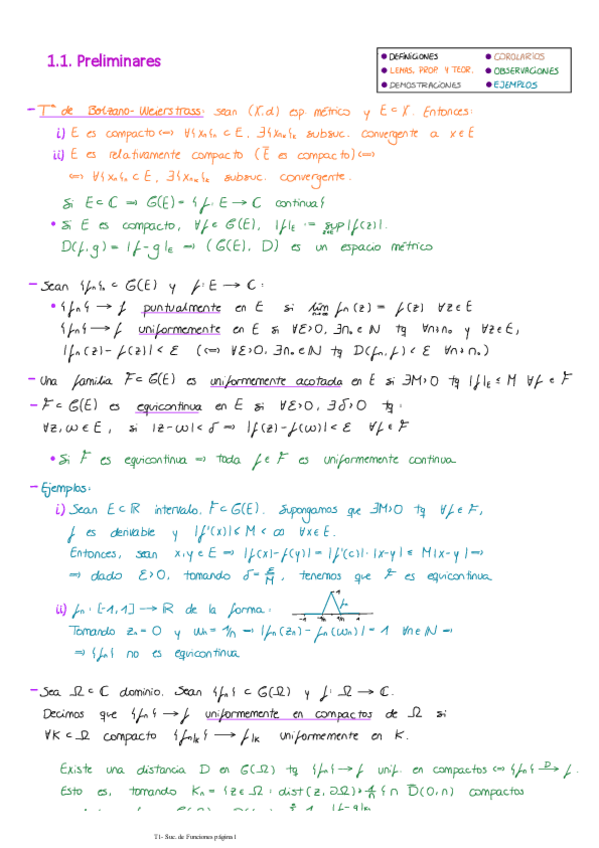 1.1. Preliminares
• DEFINICIONES
• COROLARIOS
• LEMAS, PROP. Y TEOR.
• OBSERVACIONES
• DEMOSTRACIONES
• EJEMPLOS
– Tª de Bolzano-Weierstrass: sean (X,d) esp. métrico y E ⊂ X. Entonces:
i) E es compacto ⟺ ∀{xₙ}ₙ ⊂ E, ∃{xₙₖ}ₖ subsuc. convergente a x ∈ E
ii) E es relativamente compacto (E̅ es compacto) ⟺
⟺ ∀{xₙ}ₙ ⊂ E, ∃{xₙₖ}ₖ subsuc. convergente.
Si E ⊂ ℂ ⟹ G(E) = {f: E → ℂ continua}
• Si E es compacto, ∀f ∈ G(E), |f|_E := sup |f(z)|.
D(f,g) = |f-g|_E ⟹ (G(E), D) es un espacio métrico
– Sean {fₙ}ₙ ⊂ G(E) y f: E → ℂ:
• {fₙ} → f puntualmente en E si lím fₙ(z) = f(z) ∀z ∈ E
{fₙ} → f uniformemente en E si ∀ε>0, ∃n₀ ∈ ℕ tq ∀n>n₀ y ∀z ∈ E,
|fₙ(z) - f(z)| < ε (⟺ ∀ε>0, ∃n₀ ∈ ℕ tq D(fₙ,f) < ε ∀n>n₀)
– Una familia F ⊂ G(E) es uniformemente acotada en E si ∃M>0 tq |f|_E ≤ M ∀f ∈ F
– F ⊂ G(E) es equicontinua en E si ∀ε>0, ∃δ>0 tq:
∀z,ω ∈ E, si |z-ω| < δ ⟹ |f(z) - f(ω)| < ε ∀f ∈ F
• Si F es equicontinua ⟹ toda f ∈ F es uniformemente continua
– Ejemplos:
i) Sean E ⊂ ℝ intervalo, F ⊂ G(E). Supongamos que ∃M>0 tq ∀f ∈ F,
f es derivable y |f'(x)| ≤ M < ∞ ∀x ∈ E.
Entonces, sean x,y ∈ E ⟹ |f(x) - f(y)| = |f'(c)|·|x-y| ≤ M|x-y| ⟹
⟹ dado ε>0, tomando δ = ε/M, tenemos que F es equicontinua
ii) fₙ: [-1,1] → ℝ de la forma:
Tomando zₙ = 0 y ωₙ = 1/n ⟹ |fₙ(zₙ) - fₙ(ωₙ)| = 1 ∀n ∈ ℕ ⟹
⟹ {fₙ} no es equicontinua
– Sea Ω ⊂ ℂ dominio. Sean {fₙ} ⊂ G(Ω) y f: Ω → ℂ.
Decimos que {fₙ} → f uniformemente en compactos de Ω si
∀K ⊂ Ω compacto {fₙ|ₖ} → f|ₖ uniformemente en K.
Existe una distancia D en G(Ω) tq {fₙ} → f unif. en compactos ⟺ {fₙ} →ᴰ f.
Esto es, tomando Kₙ = {z ∈ Ω : dist(z,∂Ω) ≥ 1/n} ∩ D̅(0,n) compactos
T1- Suc. de Funciones página 1